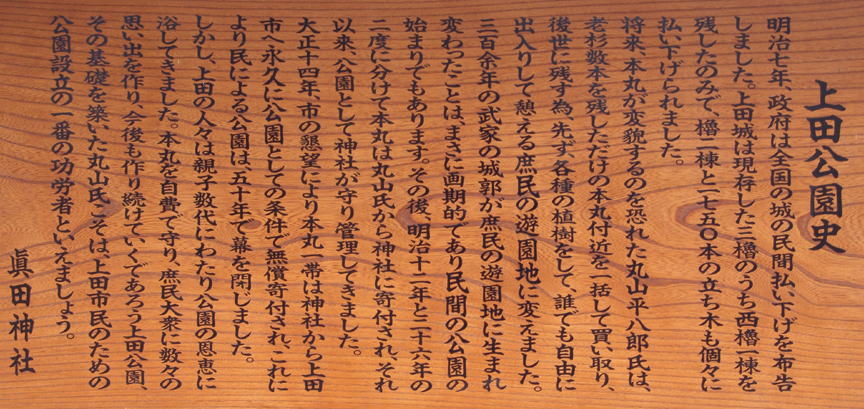 上田公園史
明治七年、政府は全国の城の民間払い下げを布告
しました。上田城は現存した三櫓のうち西櫓一棟を
残したのみで、櫓一棟と一七五〇本の立ち木も個々に
払い下げられました。
将来、本丸が変貌するのを恐れた丸山平八郎氏は、
老杉数本を残しただけの本丸付近を一括して買い取り、
後世に残す為、先ず、各種の植樹をして、誰でも自由に
出入りして憩える庶民の遊園地に変えました。
三百余年の武家の城郭が庶民の遊園地に生まれ
変わったことは、まさに画期的であり民間の公園の
始まりでもあります。その後、明治十二年と二十六年の
二度に分けて本丸は丸山氏から神社に寄付され、それ
以来、公園として神社が守り管理してきました。
大正十四年、市の懇望により本丸一帯は神社から上田
市へ永久に公園としての条件で無償寄付され、これに
より民による公園は五十年で幕を閉じました。
しかし、上田の人々は親子数代にわたり公園の恩恵に
浴してきました。本丸を自費で守り、庶民大衆に数々の
思い出を作り、今後も作り続けていくであろう上田公園、
その基礎を築いた丸山氏こそは、上田市民のための
公園設立の一番の功労者といえましょう。
眞田神社